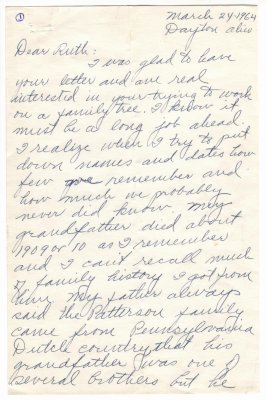 ①
March 24-1964
Dayton ohio
Dear Ruth:
I was glad to have
your letter and are real
interested in your trying to work
on a family tree. I know it
must be a long job ahead.
I realize when I try to put
down names and dates how
few we remember and
how much we probably
never did know. My
grandfather died about
1909 or 10 as I remember
and I can't recall much
of family history I got from
him. My father always
said the Patterson family
came from Pennsylvania
Dutch country, that his
grandfather was one of
several brothers but he